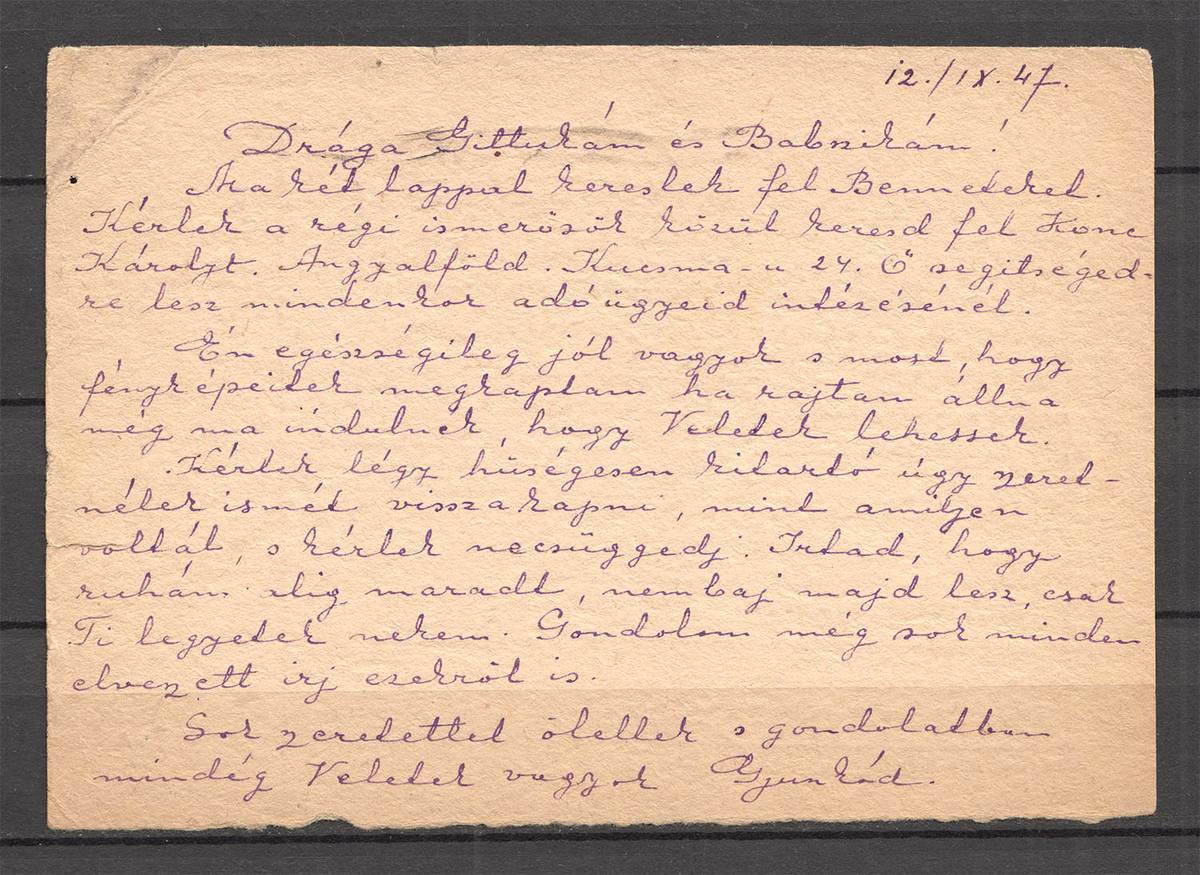 12./IX. 47.
Drága Gittukám és Babszikám!
Ma két lappal kereslek fel Benneteket.
Kérlek a régi ismerősök közül keresd fel Konc
Károlyt. Angyalföld. Kucsma-u 24. Ő segitséged-
re lesz mindenkor adóügyeid intézésénél.
Én egészségileg jól vagyok s most, hogy
fényképeitek megkaptam ha rajtam állna
még ma indulnék, hogy Veletek lehessek.
Kérlek légy hűségesen kitartó úgy szeret-
nélek ismét visszakapni, mint amilyen
voltál, s kérlek necsüggedj. Irtad, hogy
ruhám alig maradt, nembaj majd lesz, csak
Ti legyetek nekem. Gondolom még sok minden
elveszett irj ezekről is.
Sok szeretettel ölellek s gondolatban
mindég Veletek vagyok